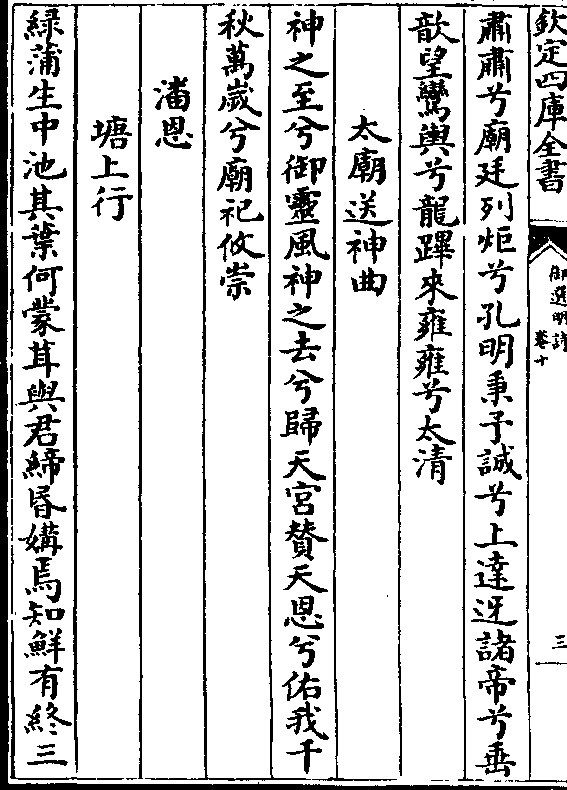 欽定四庫全書
御選明詩
卷十
三
肅肅兮廟廷列炬兮孔明秉予誠兮上達迓諸帝兮垂
歆望鸞輿兮龍蹕來雍雍兮太清
太廟送神曲
神之至兮御靈風神之去兮歸天宮贊天恩兮佑我千
秋萬歲兮廟祀攸崇
潘恩
塘上行
綠蒲生中池其葉何蒙茸與君締昬媾焉知鮮有終三